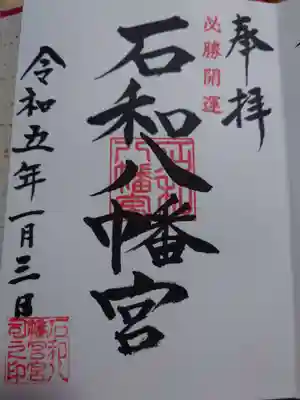 奉拝
必勝開運
石和八幡宮
石和八幡宮
令和五年一月三日
石和八幡宮司之印